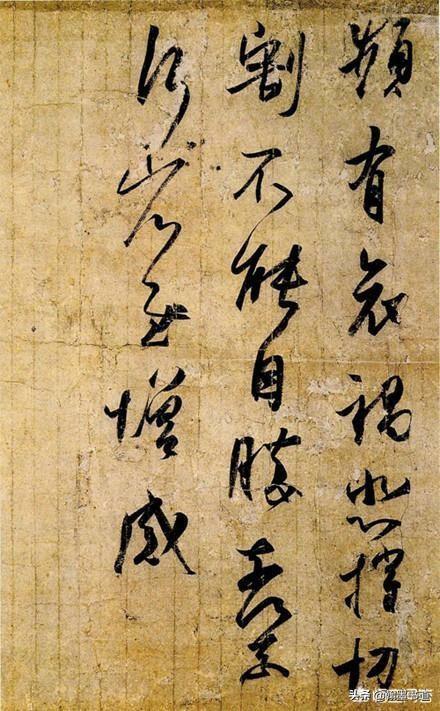 頻有哀禍悲摧切
割不能自勝奈何
奈何省慰增感
头条